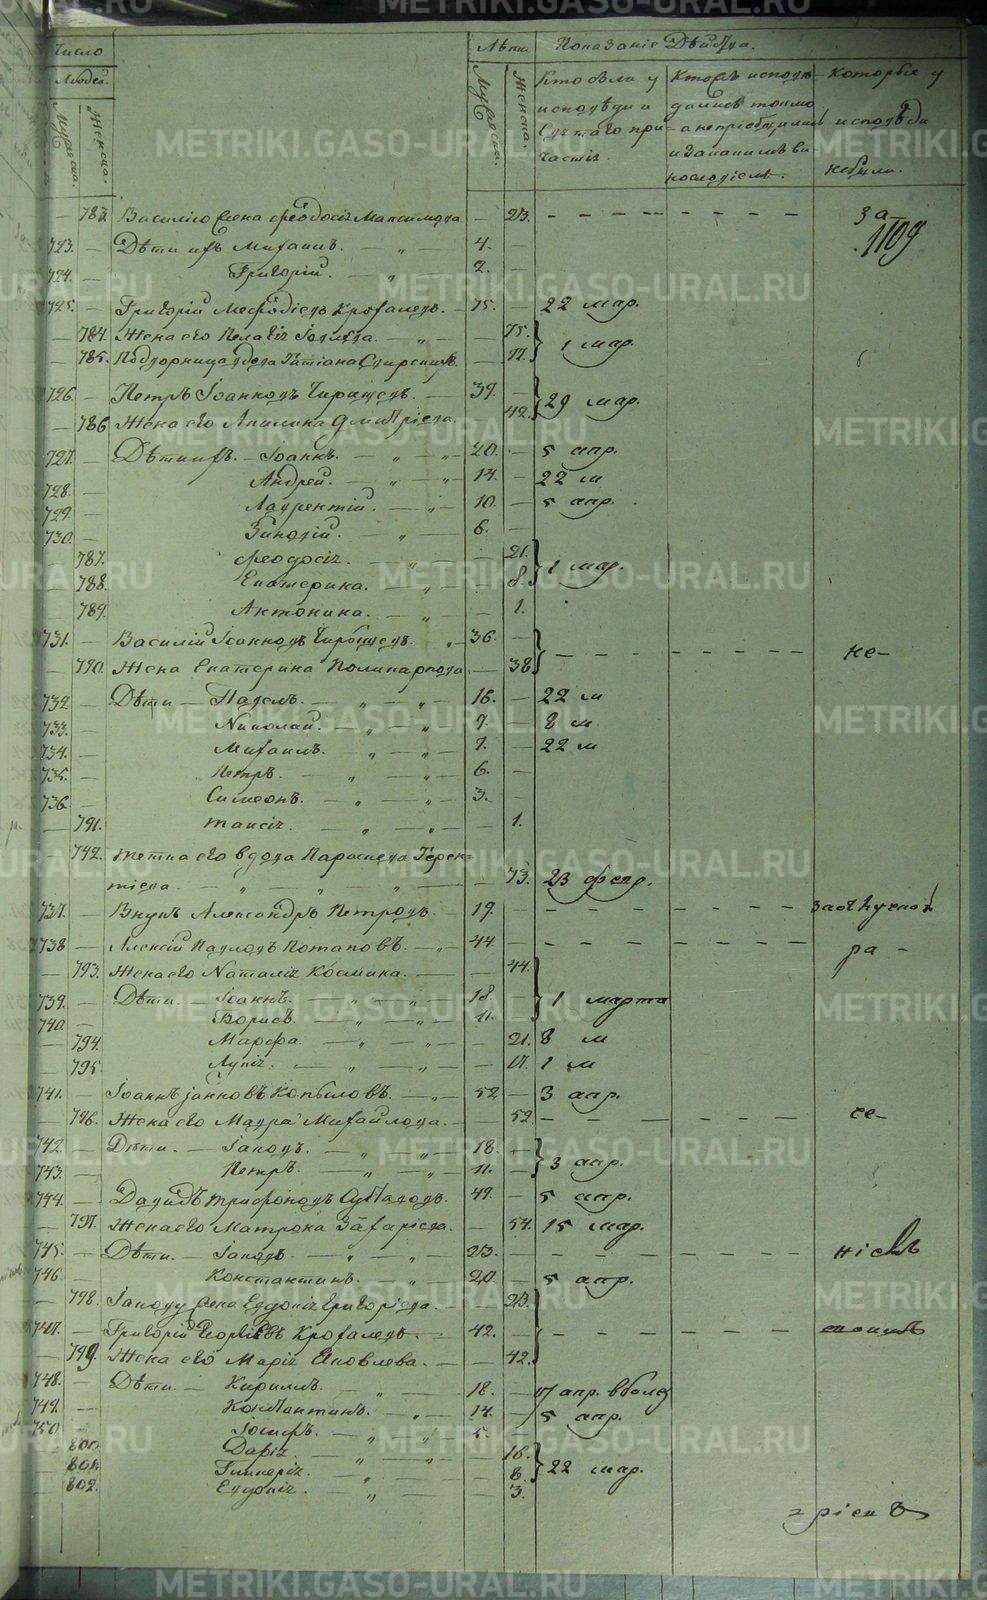 Число Лѣта Показаніе Дѣйства.
Людей. Мужеска. Женска. Кто были у исповѣди и Святаго при-частія. которые у исповѣди не были.
Мужеска. Женска.
— 783. Василію жена Ѳеодосія Максимова — 23. — — — — — — за-
1109
723. — Дѣти ихъ Михаилъ. — „ — 4. —
724. — Григорій. — „ — 2. —
725. — Григорій Меѳодіевъ Крохалевъ. — 75. — 22 мар.
— 784. Жена его Пелагія Іовлева — „ — 75.
— 785. вдова Татіана — 77. } 1 мар.
726. — Петръ Іоанновъ — 39. —
— 786 Жена его Акилина Дмитріева. — 42. } 29 мар.
727. — Дѣти ихъ. — Іоаннъ. — „ — „ — 20. — 5 апр.
728. — Андрей. — „ — „ — 14. — 22 м
729. — Лаврентій. — „ — 10. — 5 апр.
730. — Зиновій. — „ — 6. —
— 787. Ѳеодосія. — „ — 21.
— 788. Екатерина. — „ — 8. } 1 мар.
— 789. Антонина. — „ — 1.
731. — Василій Іоанновъ „ — 36. —
— 790. Жена Екатерина Поликарпова — 38 } — — — — — — не-
732. — Дѣти — Павелъ. — „ — „ — 16. — 22 м
733. — Николай. — „ „ 9. — 8 м
734. — Михаилъ. — „ — „ — 7. — 22 м
735. — Петръ. — „ — „ — 6. —
736 — Симеонъ. — „ — „ — 3. —
— 791. Таисія. — „ — „ — 1.
— 792. Тетка его вдова Параскева Терен-
тіева. — „ — „ — „ — 73. 23 февр.
737. — Внукъ Александръ Петровъ — 19. — — — — — —
738 — Алексій Павловъ Потаповъ. — „ — 44 — — — — — — ра-
— 793. Жена его Наталія Космина. — — 44.
739. — Дѣти. — Іоаннъ. — „ — „ — 18. —
740. — Борисъ. — „ — „ — 11. — } 1 марта
— 794. Марѳа. — „ — „ — 21. 8 м
— 795. Лупія. — „ — „ — 17. 1 м
741. — Іоаннъ Копыловъ. — „ — 52 — 3 апр.
— 796. Жена его Мавра Михайлова. — — 52. — — — — — — се-
742. — Дѣти. — Іаковъ. — „ — „ — 18. —
743. — Петръ. — „ — „ — 11. — } 3 апр.
744. — Давидъ Трифоновъ 49. — 5 апр.
— 797. Жена его Матрона Захаріева. — — 54. 15 мар.
745. — Дѣти. — Іаковъ. — „ — „ 23. — — — — — — — ніемъ
746. — Константинъ. — „ — 20. — 5 апр.
— 798. Іакову жена Евдокія Григоріева. — — 23.
747. — Григорій Георгіевъ Крохалевъ. — 42. —
— 799. Жена его Марія Яковлева. — — 42. } — — — — —
748. — Дѣти. — Кириллъ. — „ — 18. — 17 апр.
749. — Константинъ. — „ — 14. — 5 апр.
750. — Іосифъ. — „ „ 5. —
— 800. Дарія — „ — „ — 16.
— 801. Гликерія. — „ — 8. } 22 мар.
— 802. Евдокія. — „ — 3.
METRIKI.GASO-URAL.RU